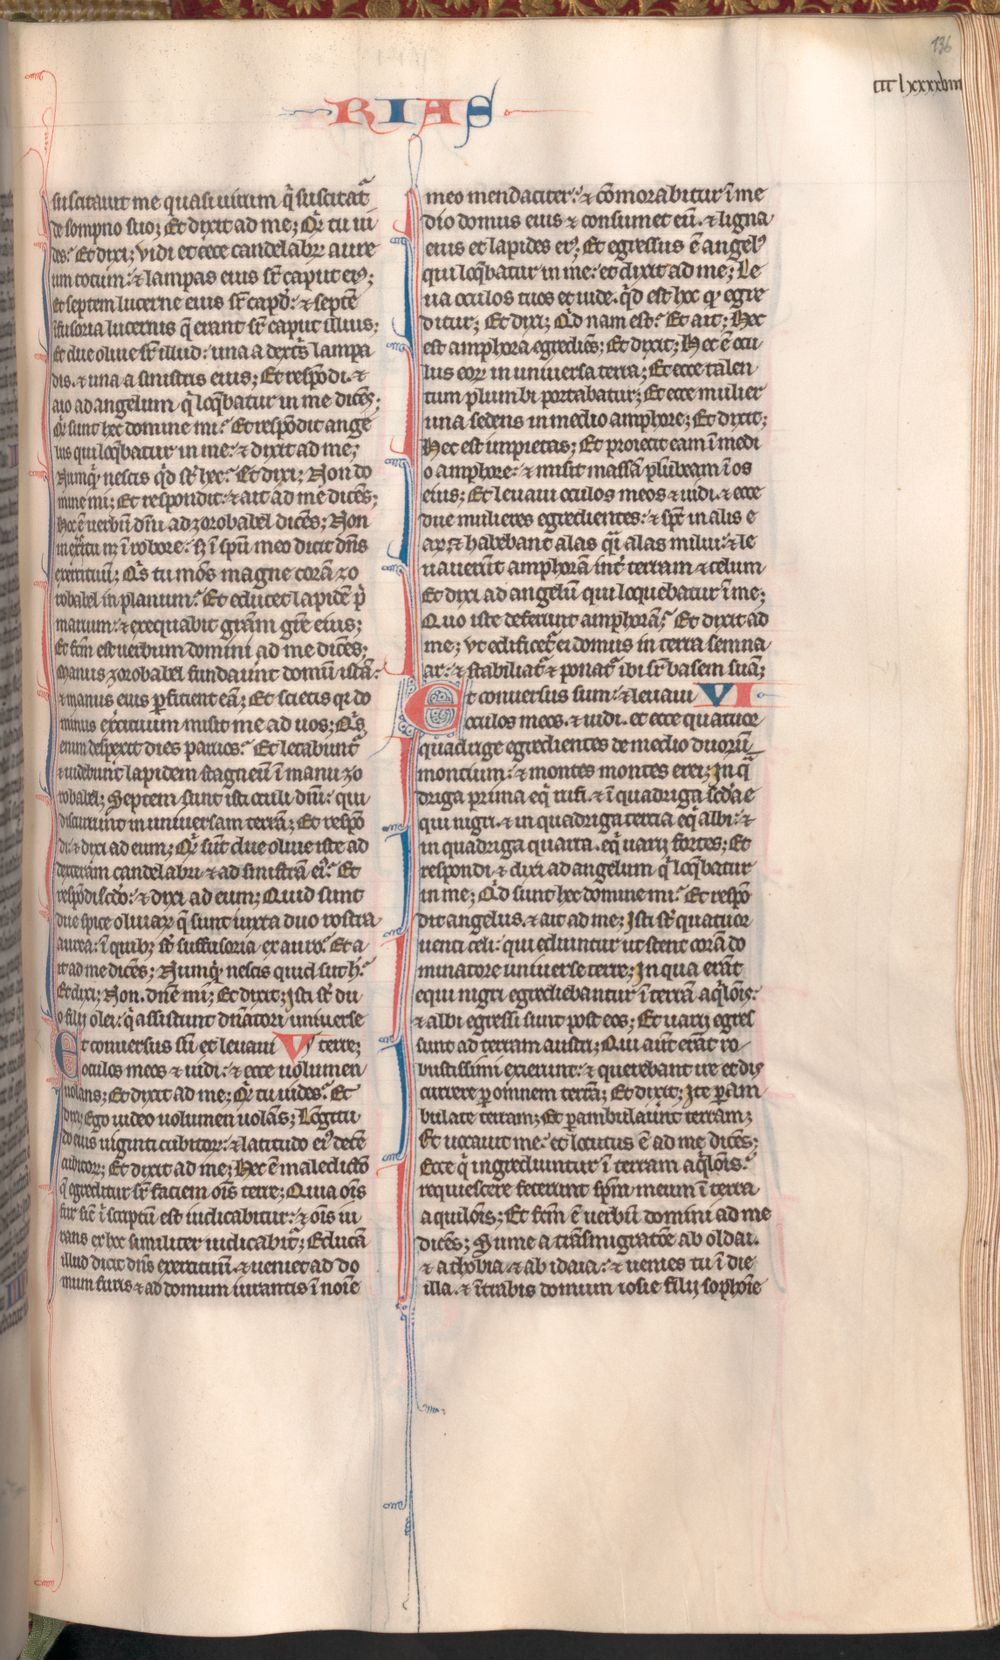 136
CCC lxxxxviii
RIAS
suscitauit me quasi uirum q̄ suscitat᷑
de sompno suo; Et dixit ad me; Qͥd tu ui
des? Et dixi; Vidi et ecce candelabrꝝ aure
um totum: ⁊ lampas eius sr̄ caput eiꝰ;
et septem lucerne eius sr̄ capd̄: ⁊ septē
īfusoria lucernis q̄ erant sr̄ caput illius;
Et due oliue sr̄ illud: una a dextr̄s lampa
dis. ⁊ una a sinistris eius; Et respōdi. ⁊
aio ad angelum q̄ loq̄batur in me dicēs;
Qͥd sunt hec domine mi? Et respōdit ange
lus qui loq̄batur in me: ⁊ dixit ad me;
Numqͥd nescis qͥd st̄ hec? Et dixi; Non do
mine mi; Et respondit: ⁊ ait ad me dicēs;
Hoc ē uerbū dn̄i ad zorobabel dicēs; Non
in exc̄itu nec ī robore: sꝫ ī spū meo dicit dn̄s
exercituū; Qͥs tu mōs magne corā zo
robabel in planum? Et educet lapidē p̄
marium: ⁊ exequabit gr̄am gr̄e eius;
Et fc̄m est uerbum domini ad me dicēs;
Manus zorobabel fundauīt domū istā:
⁊ manus eius ꝑficient eā; Et scietis qꝛ do
minus exc̄ituum misit me ad uos; Qͥs
enim despexit dies paruos? Et letabunt᷑
⁊ uidebunt lapidem stagneū ī manu zo
robabel; Septem sunt isti oculi dn̄i: qui
discurrunt in uniuersam terrā; Et respō
di: ⁊ dixi ad eum; Qͥd sūt due oliue iste ad
dexteram candelabri ⁊ ad sinistrā eiꝰ? Et
respōdi sc̄do: ⁊ dixi ad eum; Quid sunt
due spice oliuaꝝ q̄ sunt iuxta duo rostra
aurea: ī quibꝫ st̄ suffusoria ex auro? Et a
it ad me dicēs; Numqͥd nescis quid sūt h̄?
Et dixi; Non. dn̄e mi; Et dixit; Isti st̄ du
o filij olei: q̄ assistunt dn̄atori uniuerse
Et conuersus sū et leuaui V terre;
oculos meos ⁊ uidi: ⁊ ecce uolumen
uolans; Et dixit ad me; Qͥd tu uides? Et
dixi; Ego uideo uolumen uolās; Lōgitu
do eius uiginti cubitoꝝ: ⁊ latitudo eiꝰ decē
cubitoꝝ; Et dixit ad me; Hec ē maledictō
q̄ egreditur sr̄ faciem oīs terre; Quia oīs
fur sic̄ ī scriptū est iudicabitur: ⁊ oīs iu
rans ex hoc similiter iudicabit᷑; Educā
illud dicit dn̄s exercituū. ⁊ ueniet ad do
mum furis ⁊ ad domum iurantis ī noīe
meo mendaciter: ⁊ cōmorabitur ī me
dio domus eius ⁊ consumet eū. ⁊ ligna
eius et lapides eiꝰ; Et egressus ē angelꝰ
qui loq̄batur in me: et dixit ad me; Le
ua oculos tuos et uide. qͥd est hoc qͩ egre
ditur; Et dixi; Qͥd nam est? Et ait; Hec
est amphora egrediēs; Et dixit; Hec ē ocu
lus eoꝝ in uniuersa terra; Et ecce talen
tum plumbi portabatur; Et ecce mulier
una sedens in medio amphore; Et dixit;
Hec est impietas; Et proiecit eam ī medi
o amphore: ⁊ misit massā plūbeam ī os
eius; Et leuaui oculos meos ⁊ uidi. ⁊ ecce
due mulieres egredientes: ⁊ spc̄ in alis e
aꝝ. ⁊ habebant alas qͣi alas milui: ⁊ le
uauerūt amphorā int᷑ terram ⁊ celum
Et dixi ad angelū qui loquebatur ī me;
Quo iste deferunt amphorā? Et dixit ad
me; Vt edificet᷑ ei domus in terra senna
ar: ⁊ stabiliat᷑ ⁊ ponat᷑ ibi sr̄ basem suā;
Et conuersus sum: ⁊ leuaui VI
oculos meos. ⁊ uidi. et ecce quatuor
quadrige egredientes de medio duorū
montium: ⁊ montes montes erei; In qͣ
driga prima eq̄ rufi. ⁊ ī quadriga sc̄da e
qui nigri. ⁊ in quadriga tercia eq̄ albi: ⁊
in quadriga quarta. eq̄ uarij fortes; Et
respondi ⁊ dixi ad angelum q̄ loq̄batur
in me; Qͥd sunt hec domine mi? Et respō
dit angelus. ⁊ ait ad me; Isti st̄ quatuor
uenti celi: qui ediuntur ut stent corā do
minatore uniuerse terre; In qua erāt
equi nigri egrediebantur ī terrā aq̄lōis:
⁊ albi egressi sunt post eos; Et uarij egres
sunt ad terram austri; Qui aūt erāt ro
bustissimi exierunt: ⁊ querebant ire et dis
currere ꝑ omnem terrā; Et dixit; Ite ꝑam
bulate terram; Et ꝑambulauīt terram;
Et uocauit me: et locutus ē ad me dicēs;
Ecce q̄ ingrediuntur ī terram aq̄lōis:
requiescere fecerunt sp̄m meum ī terra
aquilōis; Et fc̄m ē uerbū domini ad me
dicēs; Sume a trāsmigratōe ab oldai.
⁊ a thobia. ⁊ ab idaia: ⁊ uenies tu ī die
illa. ⁊ ītrabis domum iosie filij sophoīe